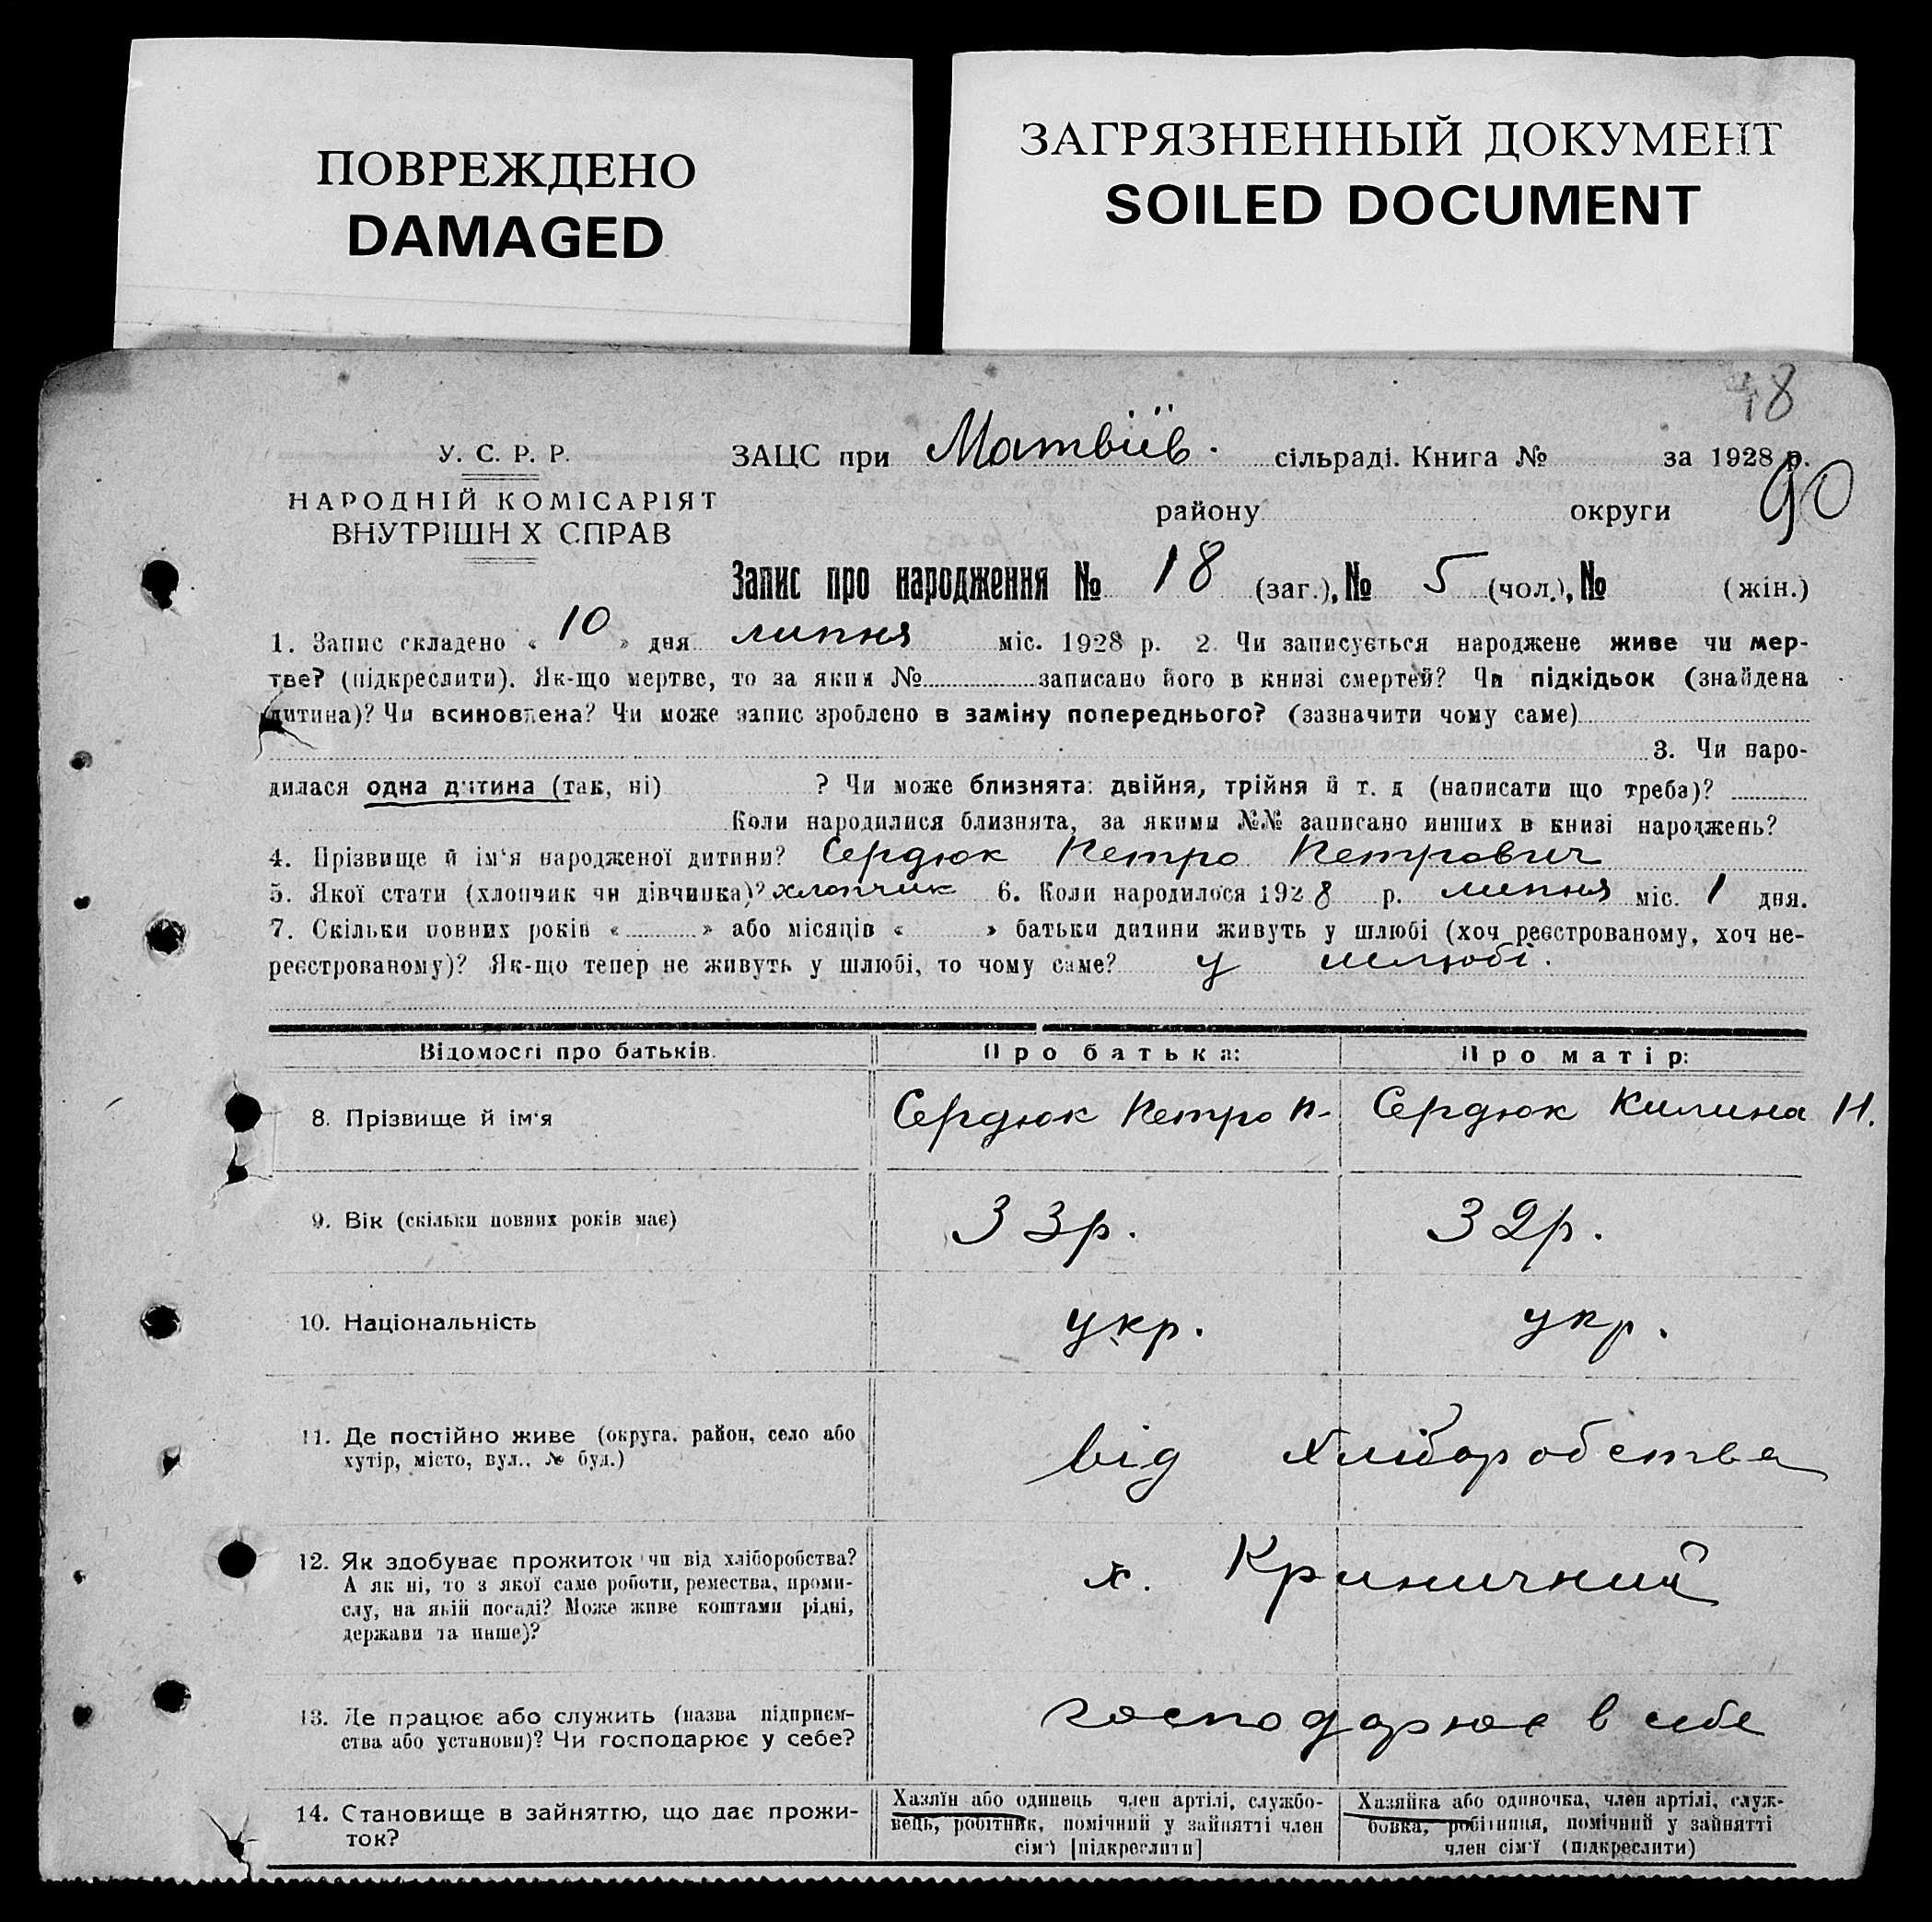 ПОВРЕЖДЕНО
DAMAGED
ЗАГРЯЗНЕННЫЙ ДОКУМЕНТ
SOILED DOCUMENT
18
У. С. Р. Р.
НАРОДНІЙ КОМІСАРІЯТ
ВНУТРІШН Х СПРАВ
ЗАЦС при Матвіїв. сільраді. Книга № за 1928 р.
району округи 90
Запис про народження № 18 (заг.), № 5 (чол.), № (жін.)
1. Запис складено « 10 » дня липня міс. 1928 р. 2. Чи записується народжене живе чи мер-
тве? (підкреслити). Як-що мертве, то за яким № записано його в книзі смертей? Чи підкідьок (знайдена
дитина)? Чи всиновлена? Чи може запис зроблено в заміну попереднього? (зазначити чому саме)
3. Чи наро-
дилася одна дитина (так, ні) ? Чи може близнята: двійня, трійня й т. д (написати що треба)?
Коли народилися близнята, за якими №№ записано инших в книзі народжень?
4. Прізвище й ім'я народженої дитини? Сердюк Петро Петрович
5. Якої стати (хлопчик чи дівчинка)? хлопчик 6. Коли народилося 1928 р. липня міс. 1 дня.
7. Скільки повних років « » або місяців « » батьки дитини живуть у шлюбі (хоч реєстрованому, хоч не-
реєстрованому)? Як-що тепер не живуть у шлюбі, то чому саме? у шлюбі.
Відомості про батьків. Про батька: Про матір:
8. Прізвище й ім'я Сердюк Петро П. Сердюк Килина И.
9. Вік (скільки повних років має) 33р. 32р.
10. Національність укр. укр.
11. Де постійно живе (округа, район, село або
хутір, місто, вул., № буд.)
від хліборобства
12. Як здобуває прожиток чи від хліборобства?
А як ні, то з якої саме роботи, ремества, проми-
слу, на якій посаді? Може живе коштами рідні,
держави та инше)?
х. Криничний
13. Де працює або служить (назва підприєм-
ства або установи)? Чи господарює у себе?
господарює в себе
14. Становище в зайняттю, що дає прожи-
ток?
Хазяїн або одинець член артілі, службо-
вець, робітник, помічний у зайнятті член
сім'ї [підкреслити]
Хазяйка або одиночка, член артілі, служ-
бовка, робітниця, помічний у зайнятті
член сім'ї (підкреслити)